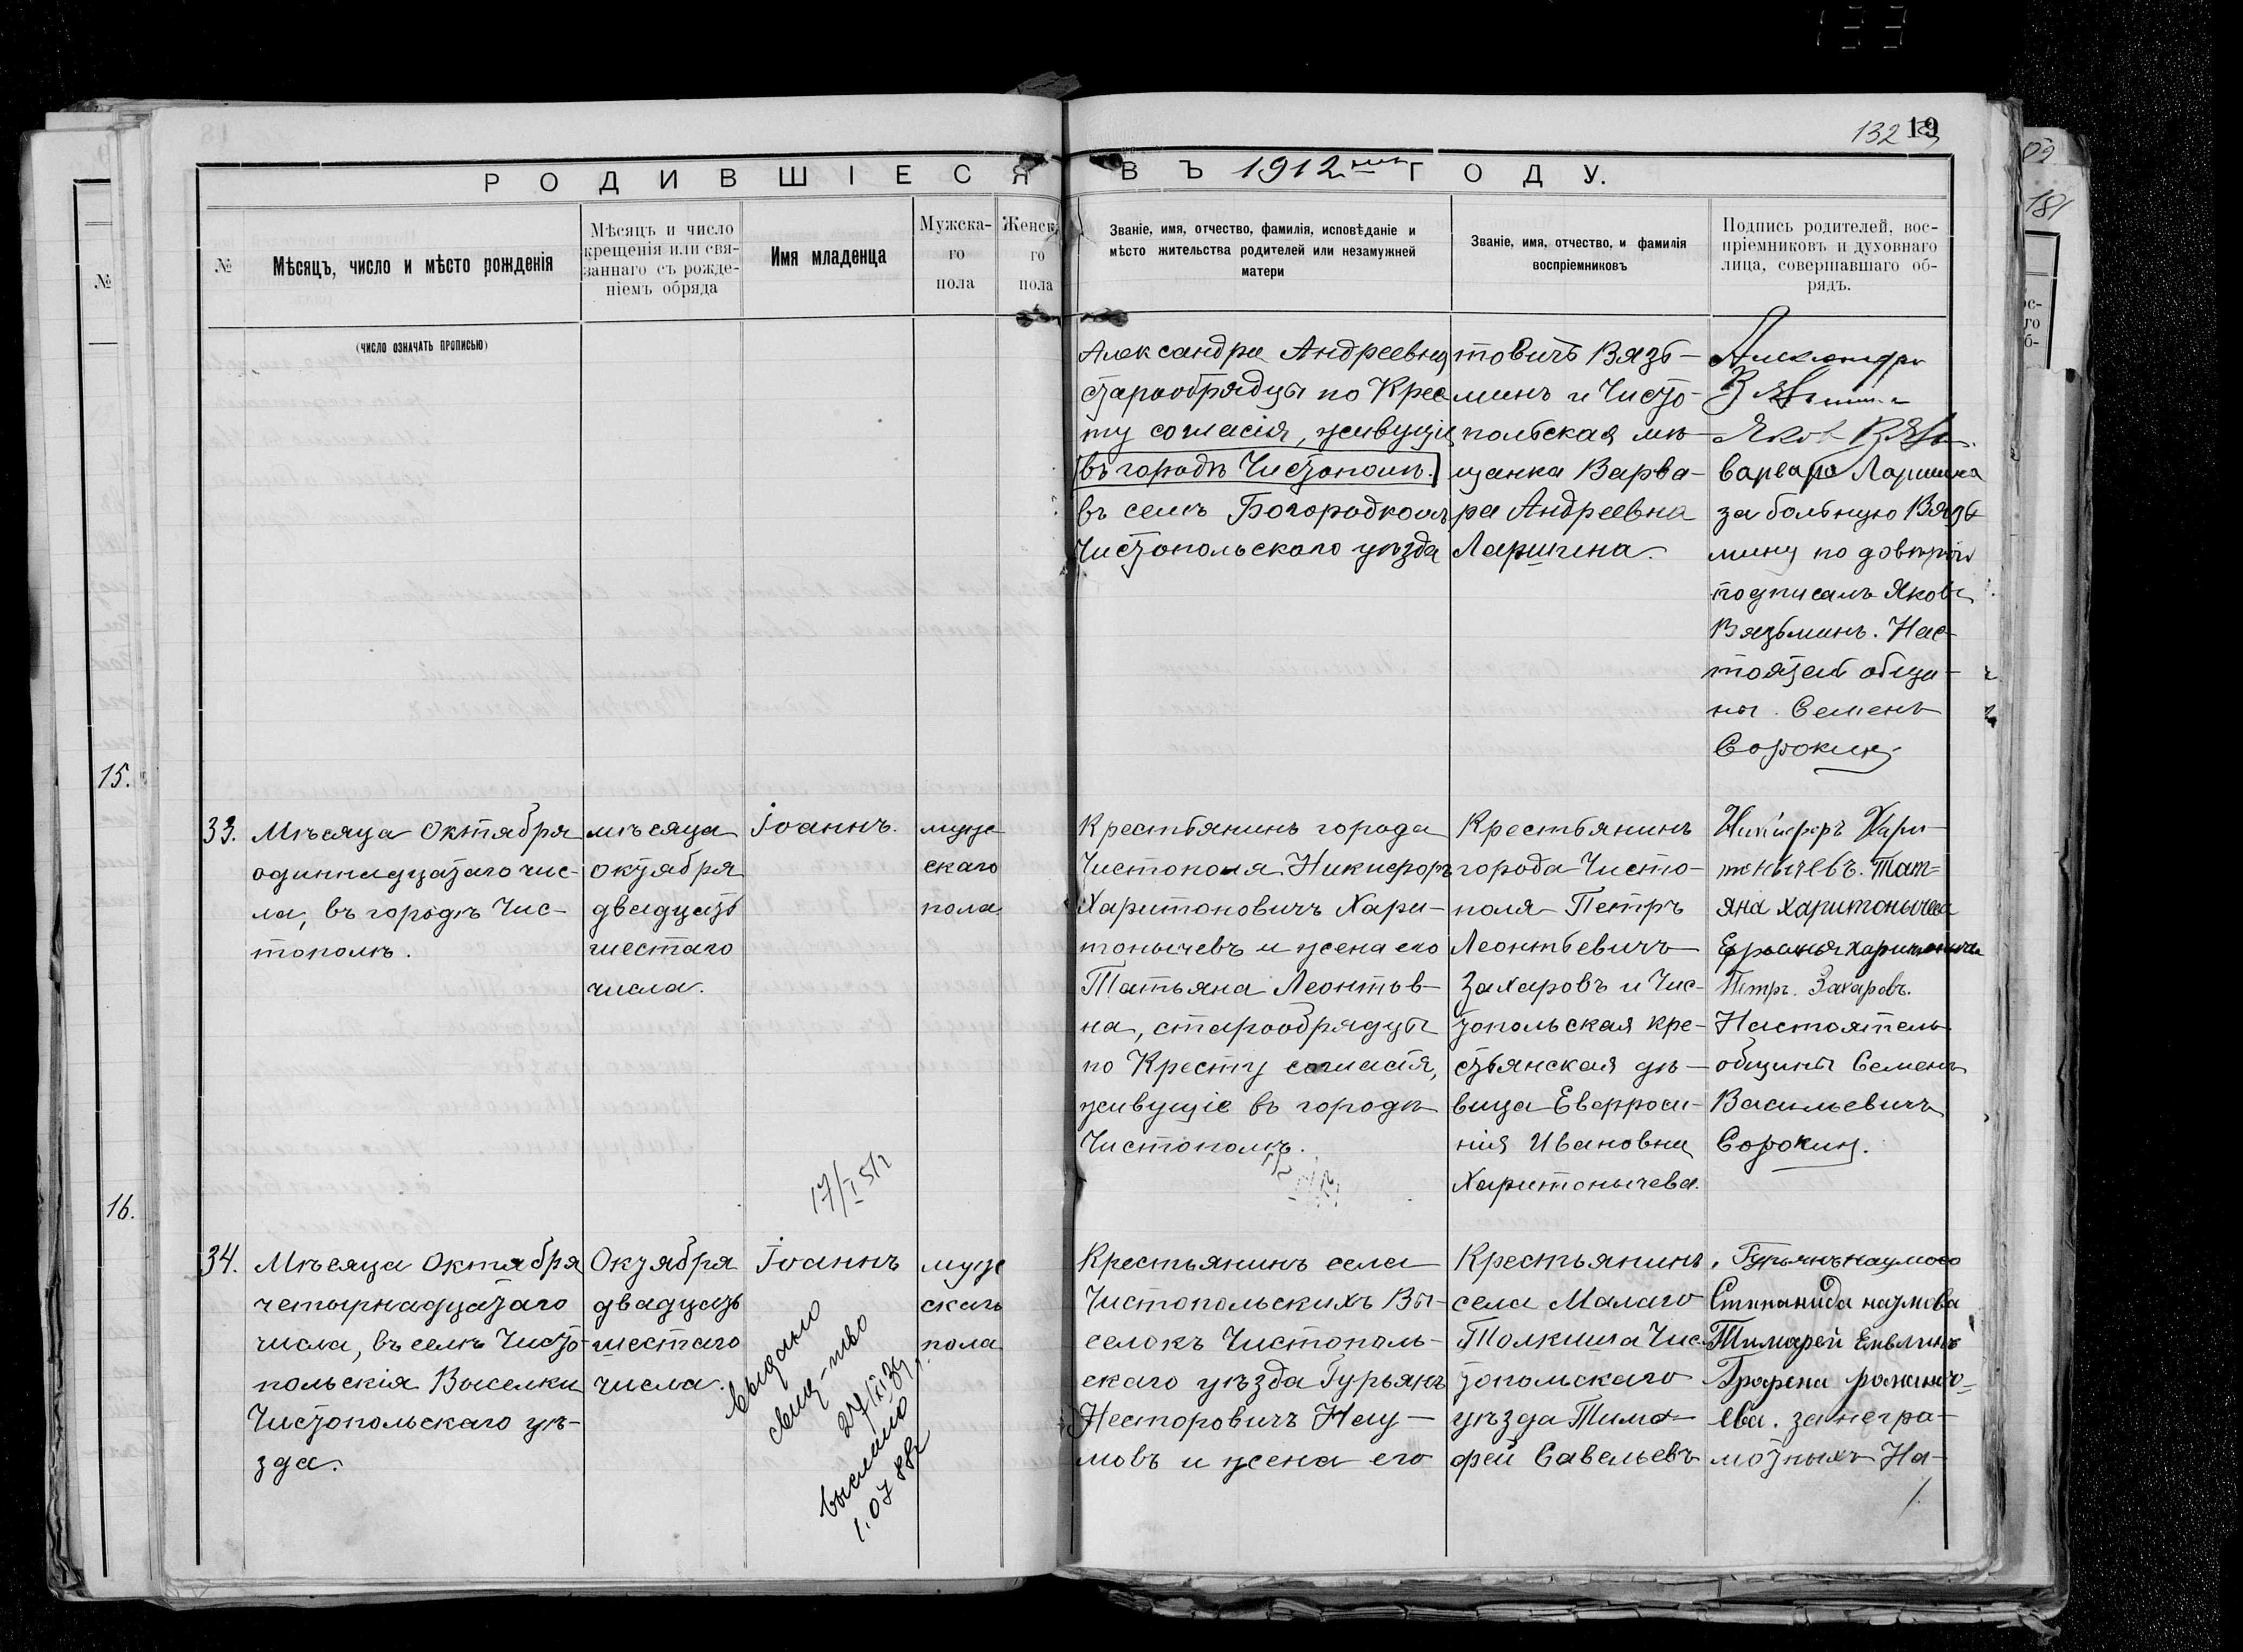 133
132
19
РОДИВШІЕСЯ ВЪ 1912 ГОДУ.
№
Мѣсяцъ, число и мѣсто рожденія
Мѣсяцъ и число
крещенія или свя-
заннаго съ рожде-
ніемъ обряда
Имя младенца
Мужска-
го
пола
Женск
го
пола
Званіе, имя, отчество, фамилія, исповѣданіе и
мѣсто жительства родителей или незамужней
матери
Званіе, имя, отчество, и фамилія
воспріемниковъ
Подпись родителей, вос-
пріемниковъ и духовнаго
лица, совершавшаго об-
рядъ.
(число означать прописью)
Александра Андреевна
старообрядцы по Крес
ту согласія, живущіе
въ городѣ Чистополѣ.
въ селѣ Богородкомъ
Чистопольскаго уѣзда
товичъ Вязь-
минъ и Чисто-
польская мѣ-
щанка Варва-
ра Андреевна
Ларшина.
Александра
Яков
варвара Ларшина
за больную Вязь
мину по довѣрію
подписалъ Яковъ
Вязьминъ. Нас-
тоятель общи-
ны Семенъ
Сорокинъ
33.
Мѣсяца Октября
одиннадцатаго чис-
ла, въ городѣ Чис-
тополѣ.
мѣсяца
октября
двадцать
шестаго
числа.
Іоаннъ.
муже
скаго
пола
Крестьянинъ города
Чистополя Никифоръ
Харитоновичъ Хари-
тонычевъ и жена его
Татьяна Леонтьв-
на, старообрядцы
по Кресту согласія,
живущіе въ городѣ
Чистополѣ.
Крестьянинъ
города Чисто-
поля Петръ
Леонтьевичъ
Захаровъ и Чис-
топольская кре-
стьянская дѣ-
вица Евфроси-
нія Ивановна
Харитонычева.
Никифоръ Хари-
тонычевъ. Тат=
яна Харитонычева
Петръ. Захаровъ.
Настоятель
общины Семенъ
Васильевичъ
Сорокинъ.
17/I 51г
34.
Мѣсяца Октября
четырнадцатаго
числа, въ селѣ Чисто-
польскія Выселки
Чистопольскаго уѣ-
зда.
Октября
двадцать
шестаго
числа.
Іоаннъ
муже
скаго
пола
выдано
свид-тво
выслано
1.07 88г
Крестьянинъ села
Чистопольскихъ Вы-
селокъ Чистополь-
скаго уѣзда Гурьянъ
Несторовичъ Нау-
мовъ и жена его
Крестьянинъ
села Малаго
Толкиша Чис
топольскаго
уѣзда Тимо-
фей Савельевъ
Гурьянъ наумово
Стипанида наумова
Тимарей
Графена
ева. за негра-
мотныхъ На-
№
15.
16.
181